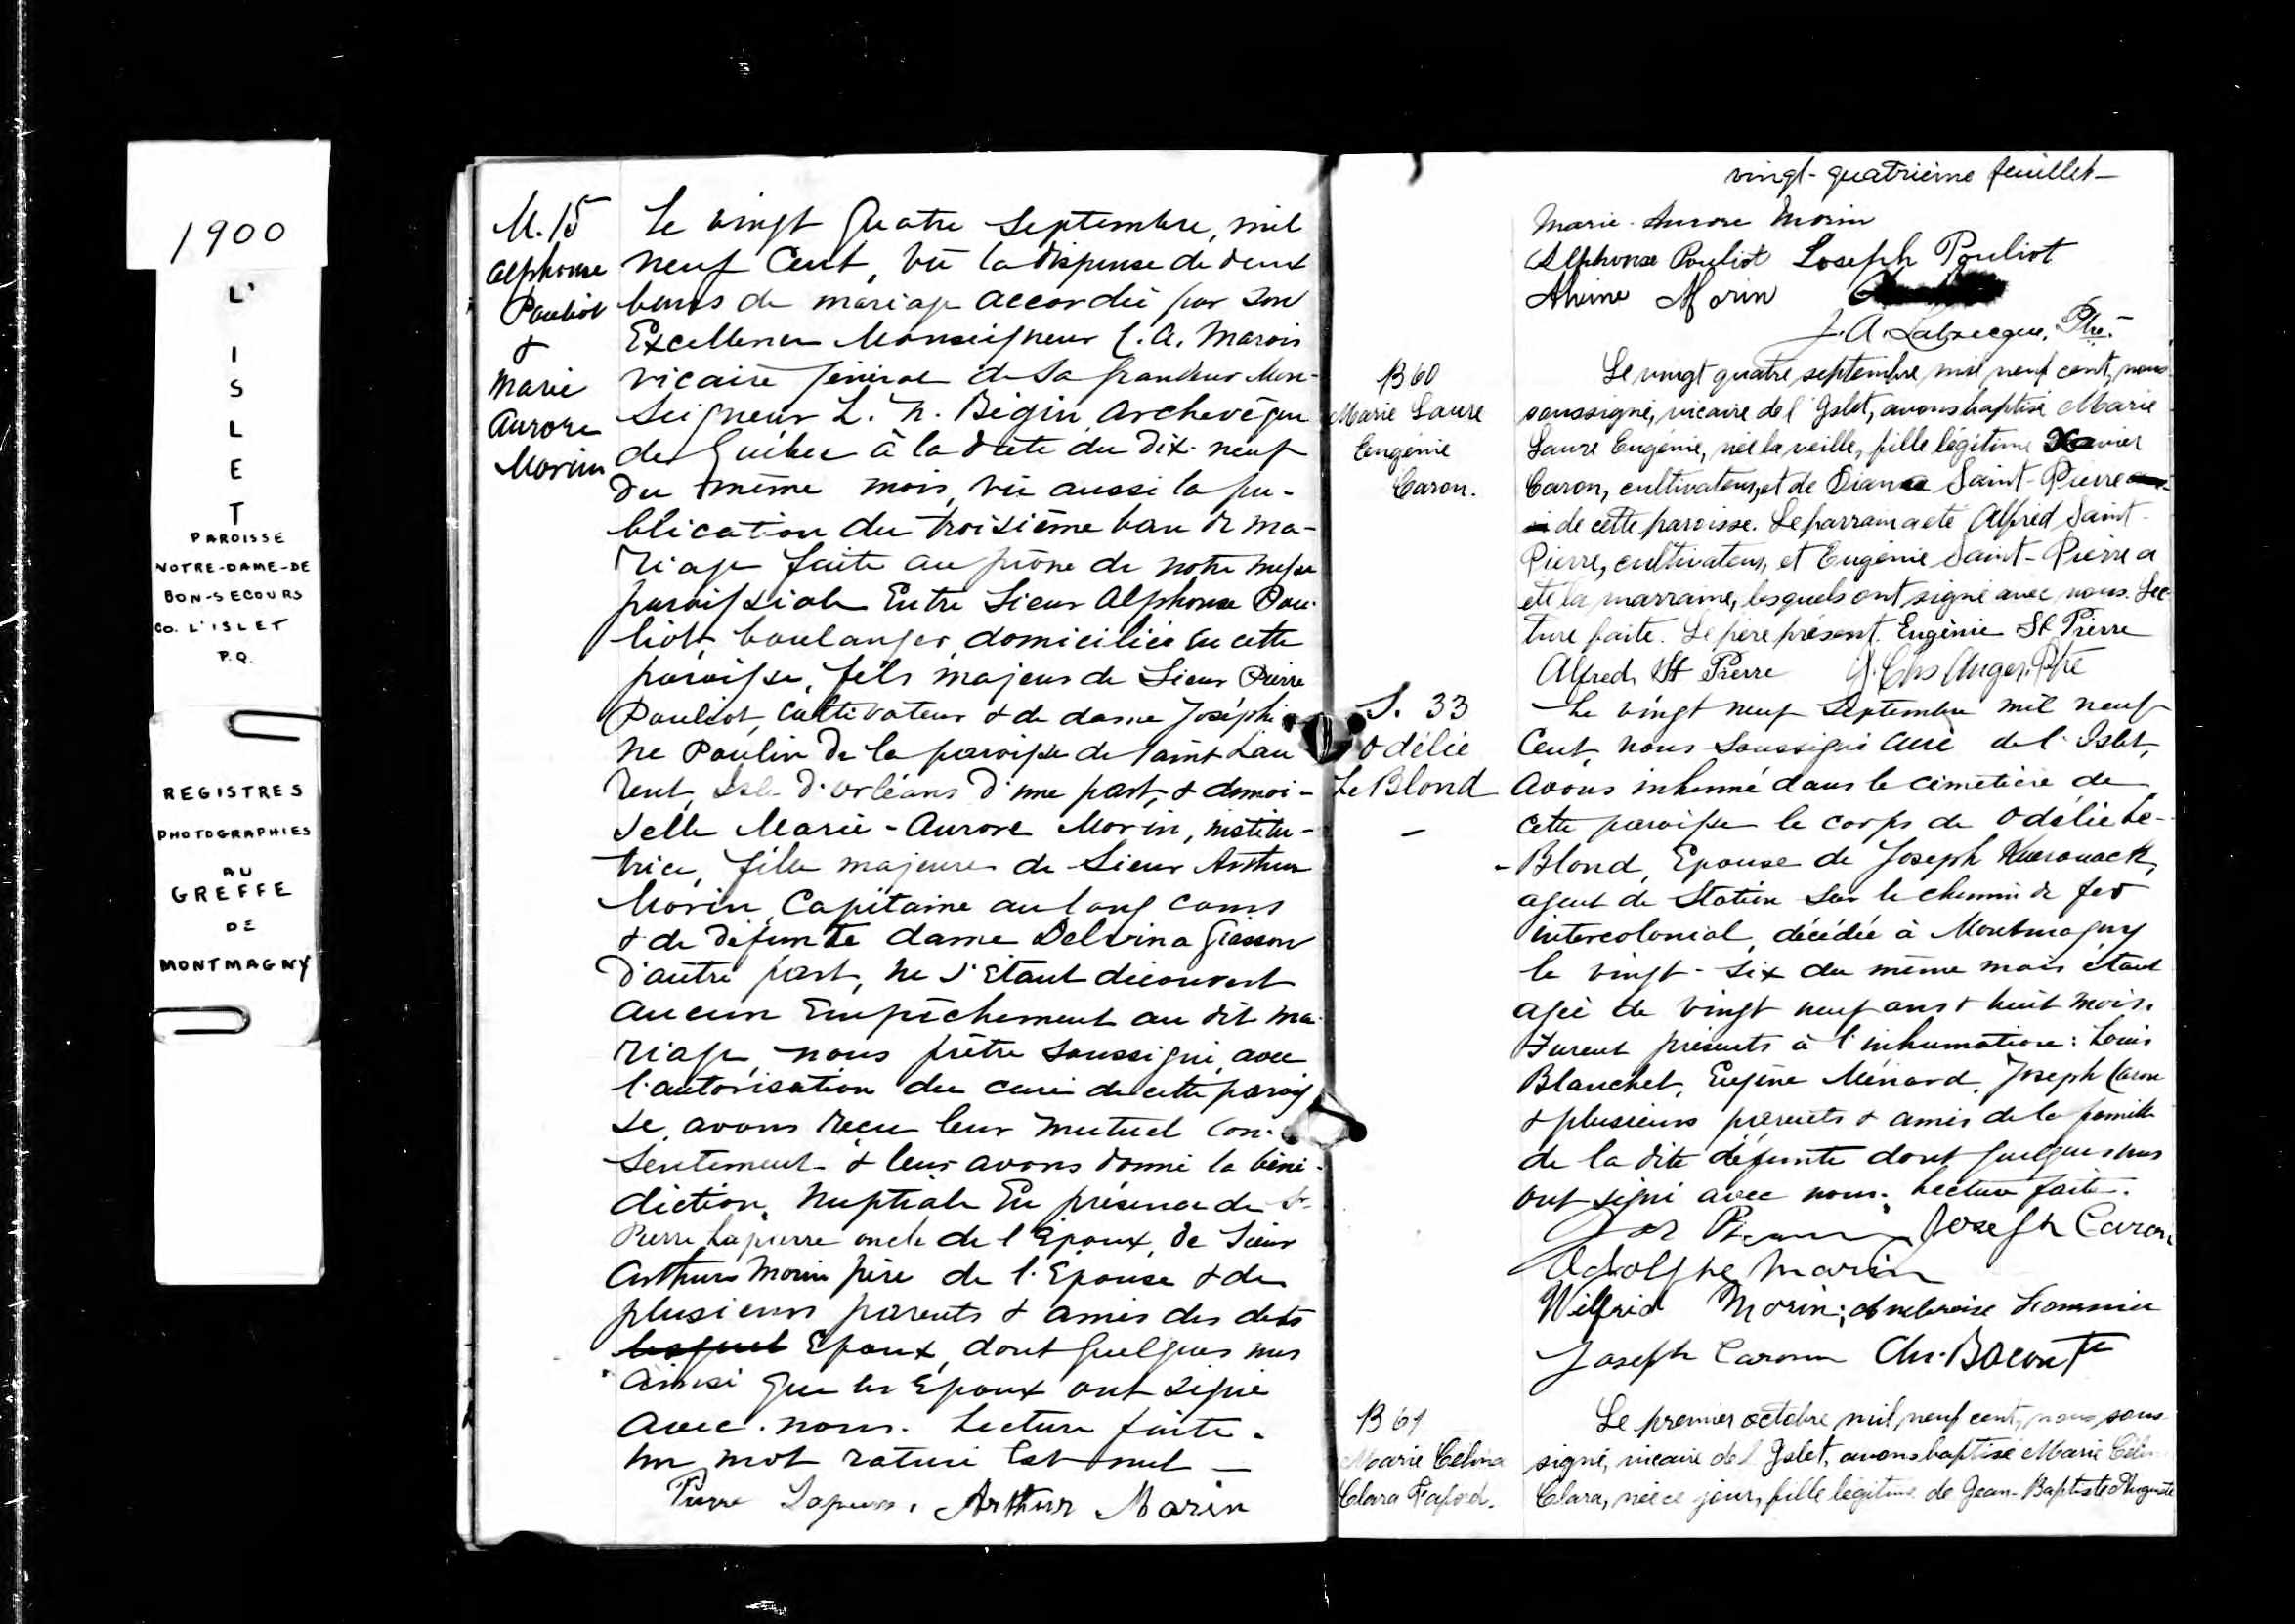 1900
L'
I
S
L
E
T
PAROISSE
NOTRE-DAME-DE
BON-SECOURS
CO. L'ISLET
P.Q.
REGISTRES
PHOTOGRAPHIES
AU
GREFFE
DE
MONTMAGNY
M. 15
Alphonse
Pouliot
&
Marie
Aurore
Morin
Le vingt quatre Septembre, mil
neuf Cent, vû la dispense de deux
bans de mariage accordée par Son
Excellence Monseigneur C. A. Marois
vicaire général de Sa grandeur Mon-
Seigneur L. N. Bégin, Archevêque
de Québec à la date du dix-neuf
du même mois, vû aussi la pu-
blication du troisième ban de ma-
riage faite au prône de notre messe
paroissiale Entre Sieur Alphonse Pou-
liot, boulanger, domicilié en cette
paroisse, fils majeur de Sieur Pierre
Pouliot, Cultivateur & de dame Joséphi
ne Paulin de la paroisse de Saint Lau
rent, Isle d'Orléans d'une part, & demoi-
selle Marie-Aurore Morin, institu-
trice, fille majeure de Sieur Arthur
Morin, Capitaine au long cours
& de défunte dame Delvina Giasson
d'autre part, ne s'étant découvert
aucun Empêchement au dit ma-
riage, nous prêtre Soussigné, avec
l'autorisation du curé de cette parois
se, avons reçu leur mutuel Con-
sentement & leur avons donné la béné-
diction Nuptiale En présence de Sr
Pierre Lapierre oncle de l'Epoux, de Sieur
Arthur Morin père de l'Epouse & de
plusieurs parents & amis des dits
Epoux, dont quelques uns
ainsi que les Epoux ont signé
avec nous. Lecture faite.
Un mot raturé Est nul —
Pierre Lapierre. Arthur Morin
vingt-quatrième feuillet—
Marie-Aurore Morin
Alphonse Pouliot Joseph Pouliot
Morin
J. A. Labrecque, Ptre.
B 60
Marie Laure
Eugénie
Caron.
Le vingt quatre septembre mil neuf cent, nous
soussigné, vicaire de l'Islet, avons baptisé Marie
Laure Eugénie, née la veille, fille légitime Xavier
Caron, cultivateur, et de Diana Saint-Pierre
de cette paroisse. Le parrain a été Alfred Saint-
Pierre, cultivateur, et Eugénie Saint-Pierre a
été la marraine, lesquels ont signé avec nous. Lec
ture faite. Le père présent. Eugénie St Pierre
Alfred St Pierre J. Chs Auger, Ptre
S. 33
Odélie
Le Blond
—
Le vingt neuf Septembre mil neuf
Cent, nous Soussigné Curé de l'Islet,
avons inhumé dans le cimetière de
cette paroisse le corps de Odélie Le-
-Blond, Epouse de Joseph Kuerouack,
agent de Station sur le chemin de fer
intercolonial, décédée à Montmagny
le vingt-six du même mois étant
agée de vingt neuf ans & huit mois.
Furent présents à l'inhumation: Louis
Blanchet, Eugène Ménard, Joseph Caron
& plusieurs parents & amis de la famille
de la dite défunte dont quelques uns
ont signé avec nous. Lecture faite.
Joseph Caron
Adolphe Morin
Wilfrid Morin; Ambroise
Joseph Caron Chs. Bacon Ptre
B 61
Marie Celina
Clara Fafard.
Le premier octobre mil neuf cent, nous sous-
signé, vicaire de l'Islet, avons baptisé Marie Célin
Clara, née ce jour, fille légitime de Jean-Baptiste Auguste